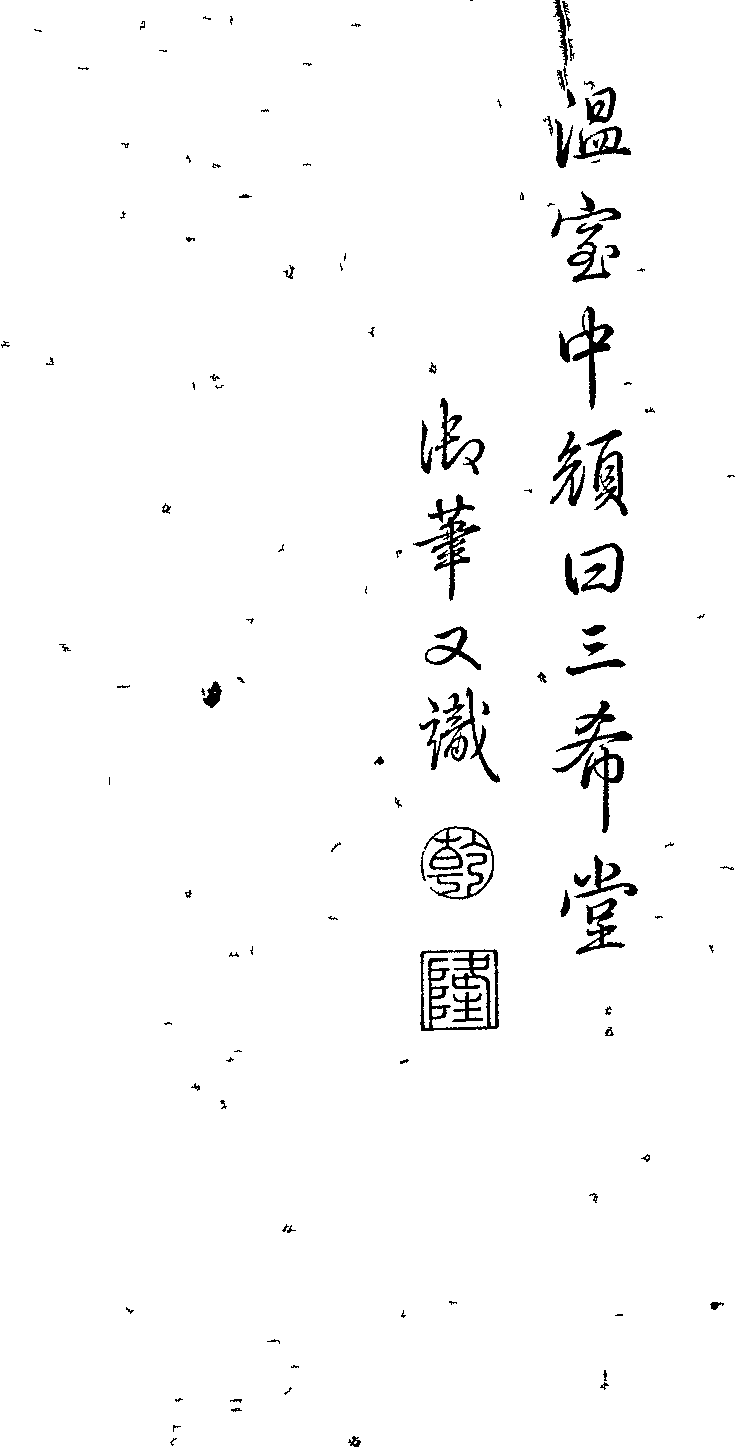 温室中顔曰三希堂
御筆又識
乾
隆